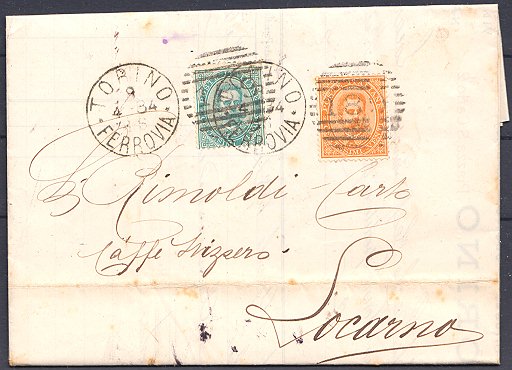 TORINO
9
4 84
FERROVIA
TORINO
4 84
FERROVIA
Sg Rimoldi Carlo
Caffè Svizzero
Locarno
TORINO